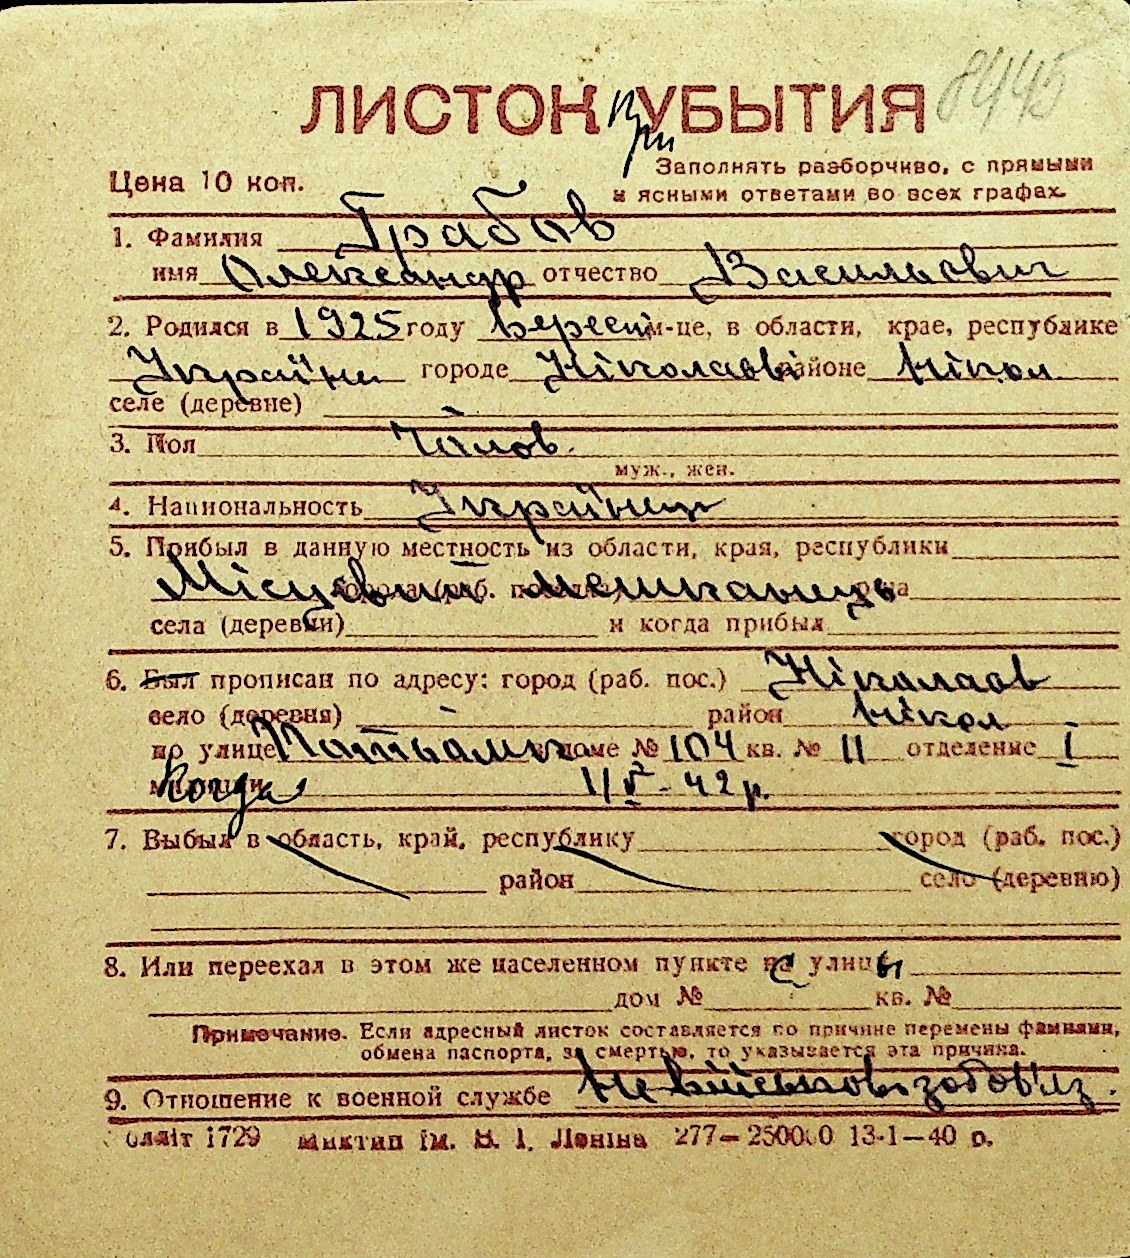 8445
ЛИСТОК при УБЫТИЯ
Цена 10 коп.
Заполнять разборчиво, с прямыми
и ясными ответами во всех графах.
1. Фамилия Грабов
имя Олександр отчество Васильович
2. Родился в 1925 году Вересні м-це, в области, крае, республике
України городе Ніколаєві районе Нікол
селе (деревне)
3. Пол Чолов.
муж., жен.
4. Национальность Українець
5. Прибыл в данную местность из области, края, республики
Місцевий мешканець
города (раб. поселка) района
села (деревни) и когда прибыл
6. Был прописан по адресу: город (раб. пос.) Ніколаєв
село (деревня) - район Нікол
по улице в доме № 104 кв. № 11 отделение I
милиции Когда 11/V - 42 р.
7. Выбыл в область, край, республику город (раб. пос.)
район село (деревню)
8. Или переехал в этом же населенном пункте с улицы
дом № кв. №
Примечание. Если адресный листок составляется по причине перемены фамилии,
обмена паспорта, за смертью, то указывается эта причина.
9. Отношение к военной службе Не військовозобов'яз.
облліт 1729 Миктип ім. В. І. Леніна 277—250000 13-1—40 р.